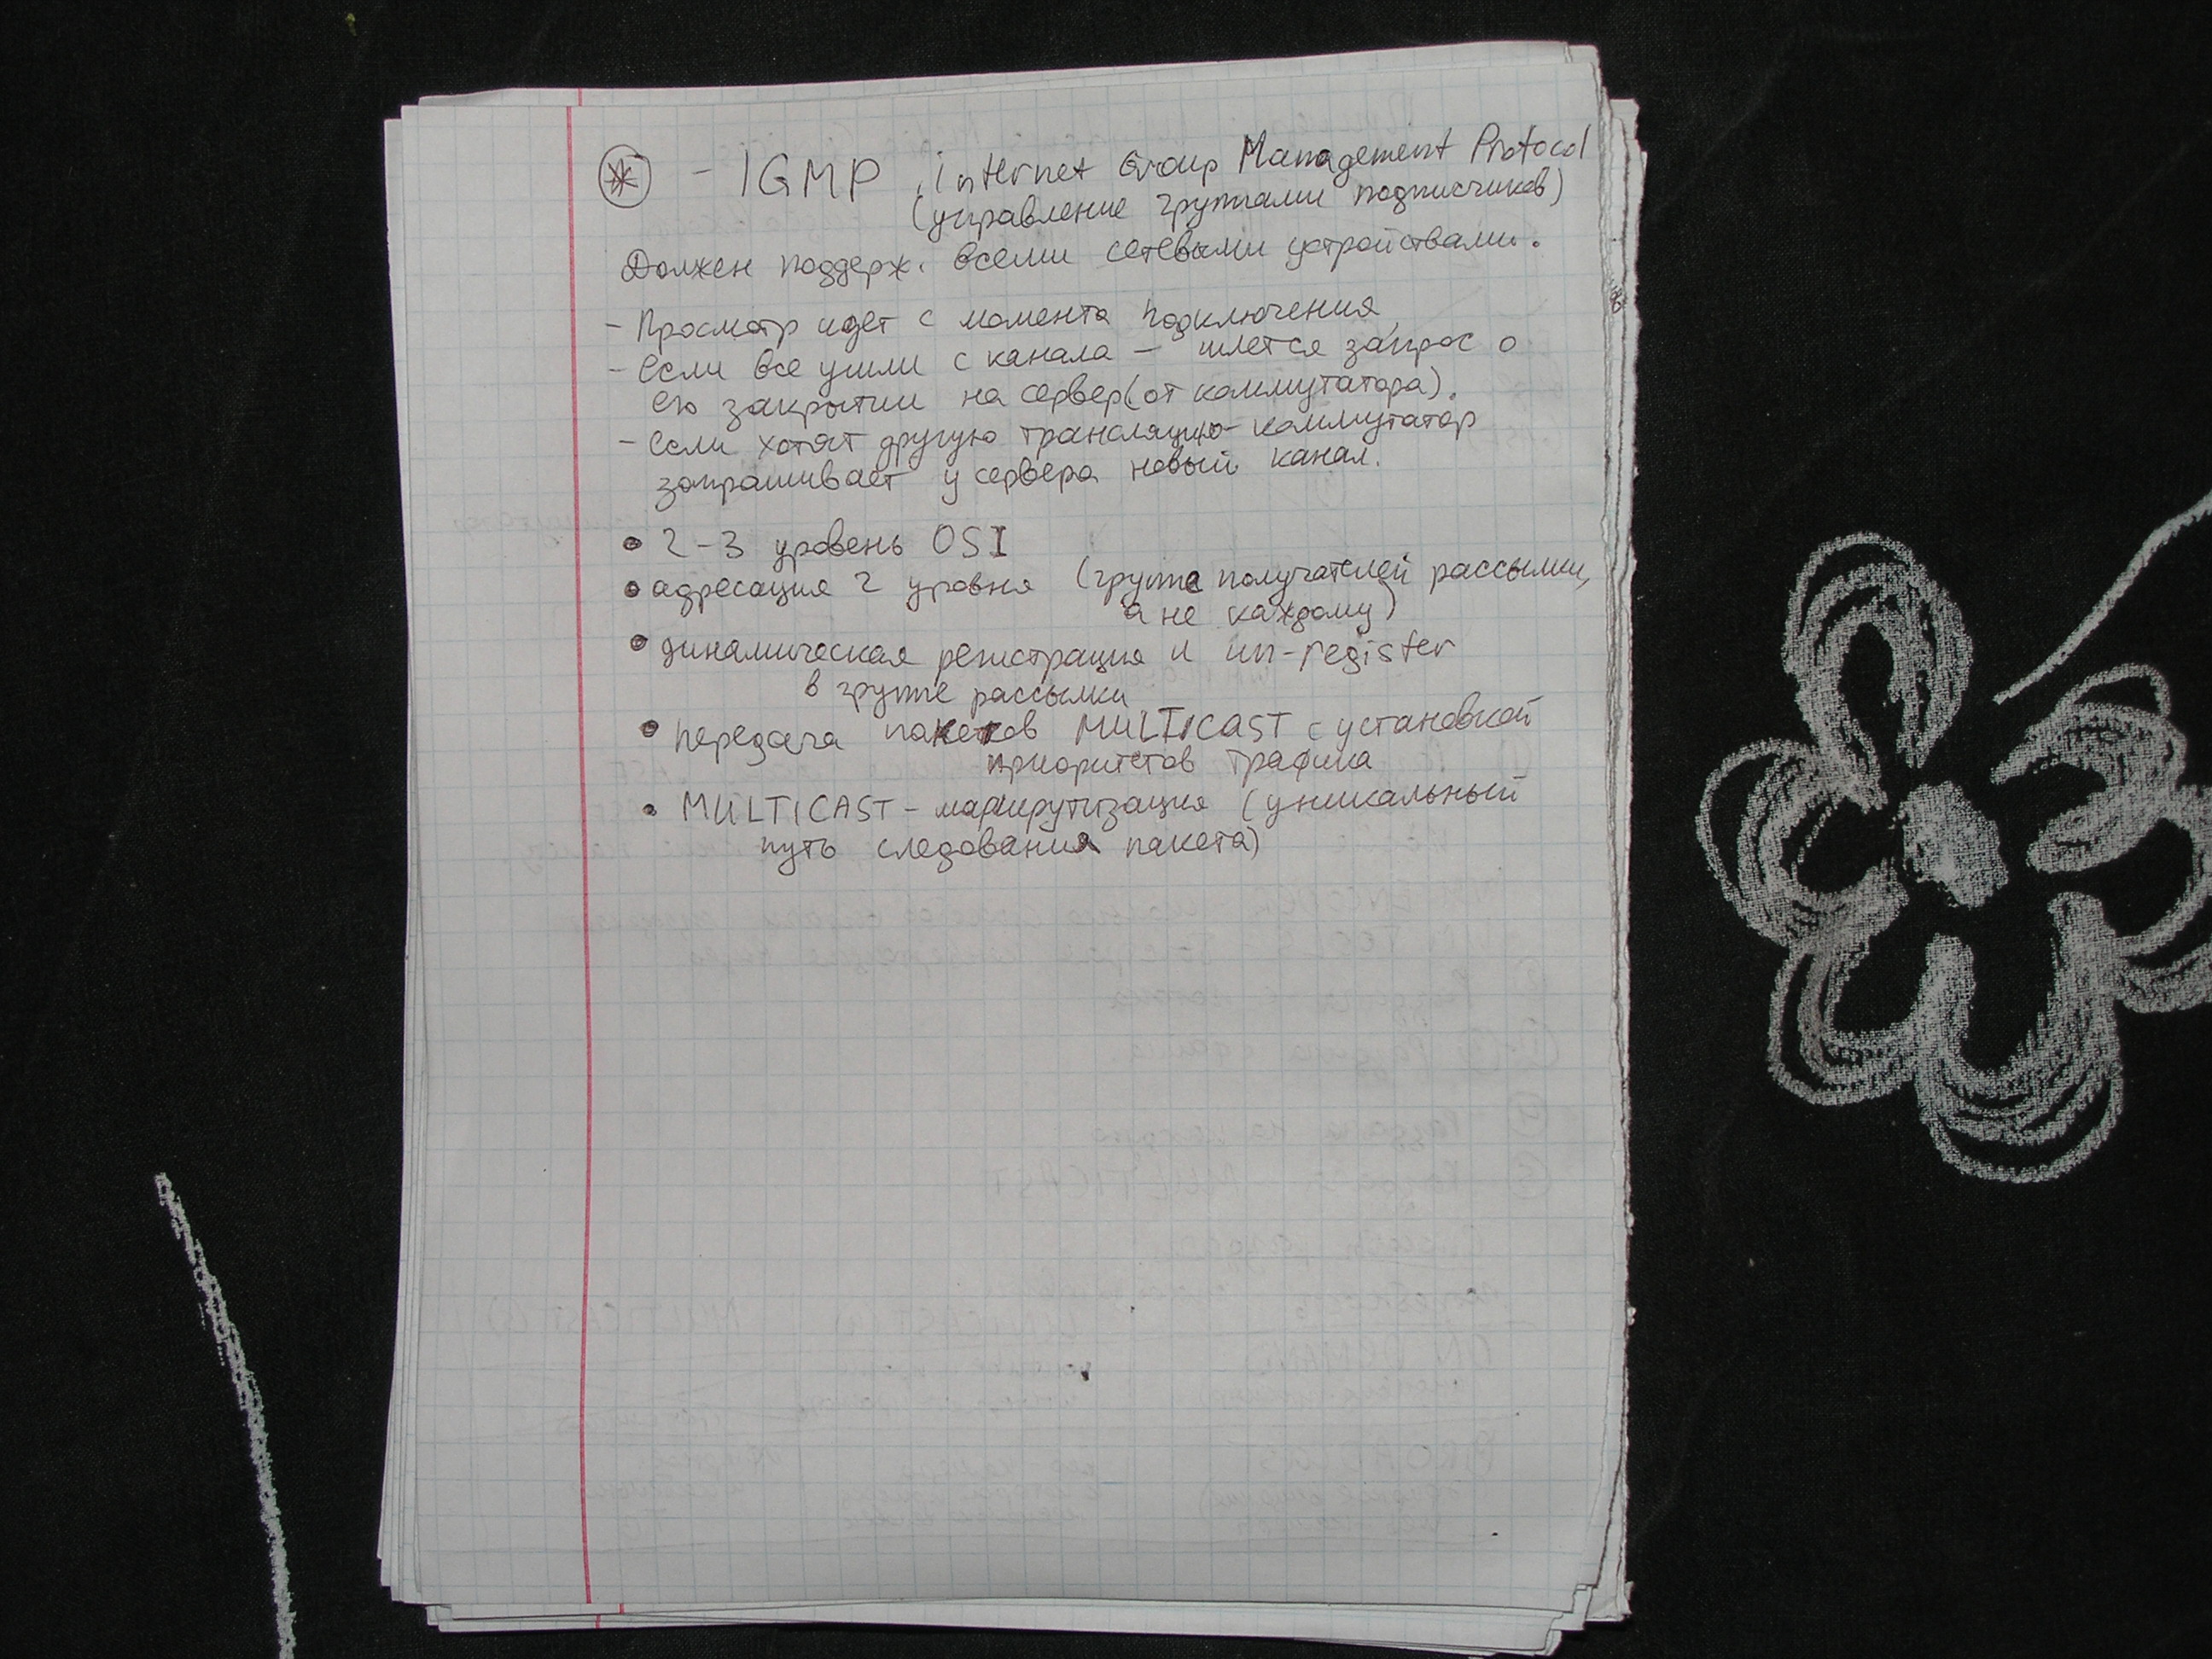 * - IGMP, internet Group Management Protocol
(управление группами подписчиков)
Должен поддерж. всеми сетевыми устройствами.
- Просмотр идет с момента подключения
- Если все ушли с канала - шлется запрос о
его закрытии на сервер (от коммутатора).
- Если хотят другую трансляцию - коммутатор
запрашивает у сервера новый канал.
• 2-3 уровень OSI
• адресация 2 уровня (группе получателей рассылки,
а не каждому)
• динамическая регистрация и un-register
в группе рассылки
• передача пакетов MULTICAST с установкой
приоритетов трафика
• MULTICAST - маршрутизация (уникальный
путь следования пакета)